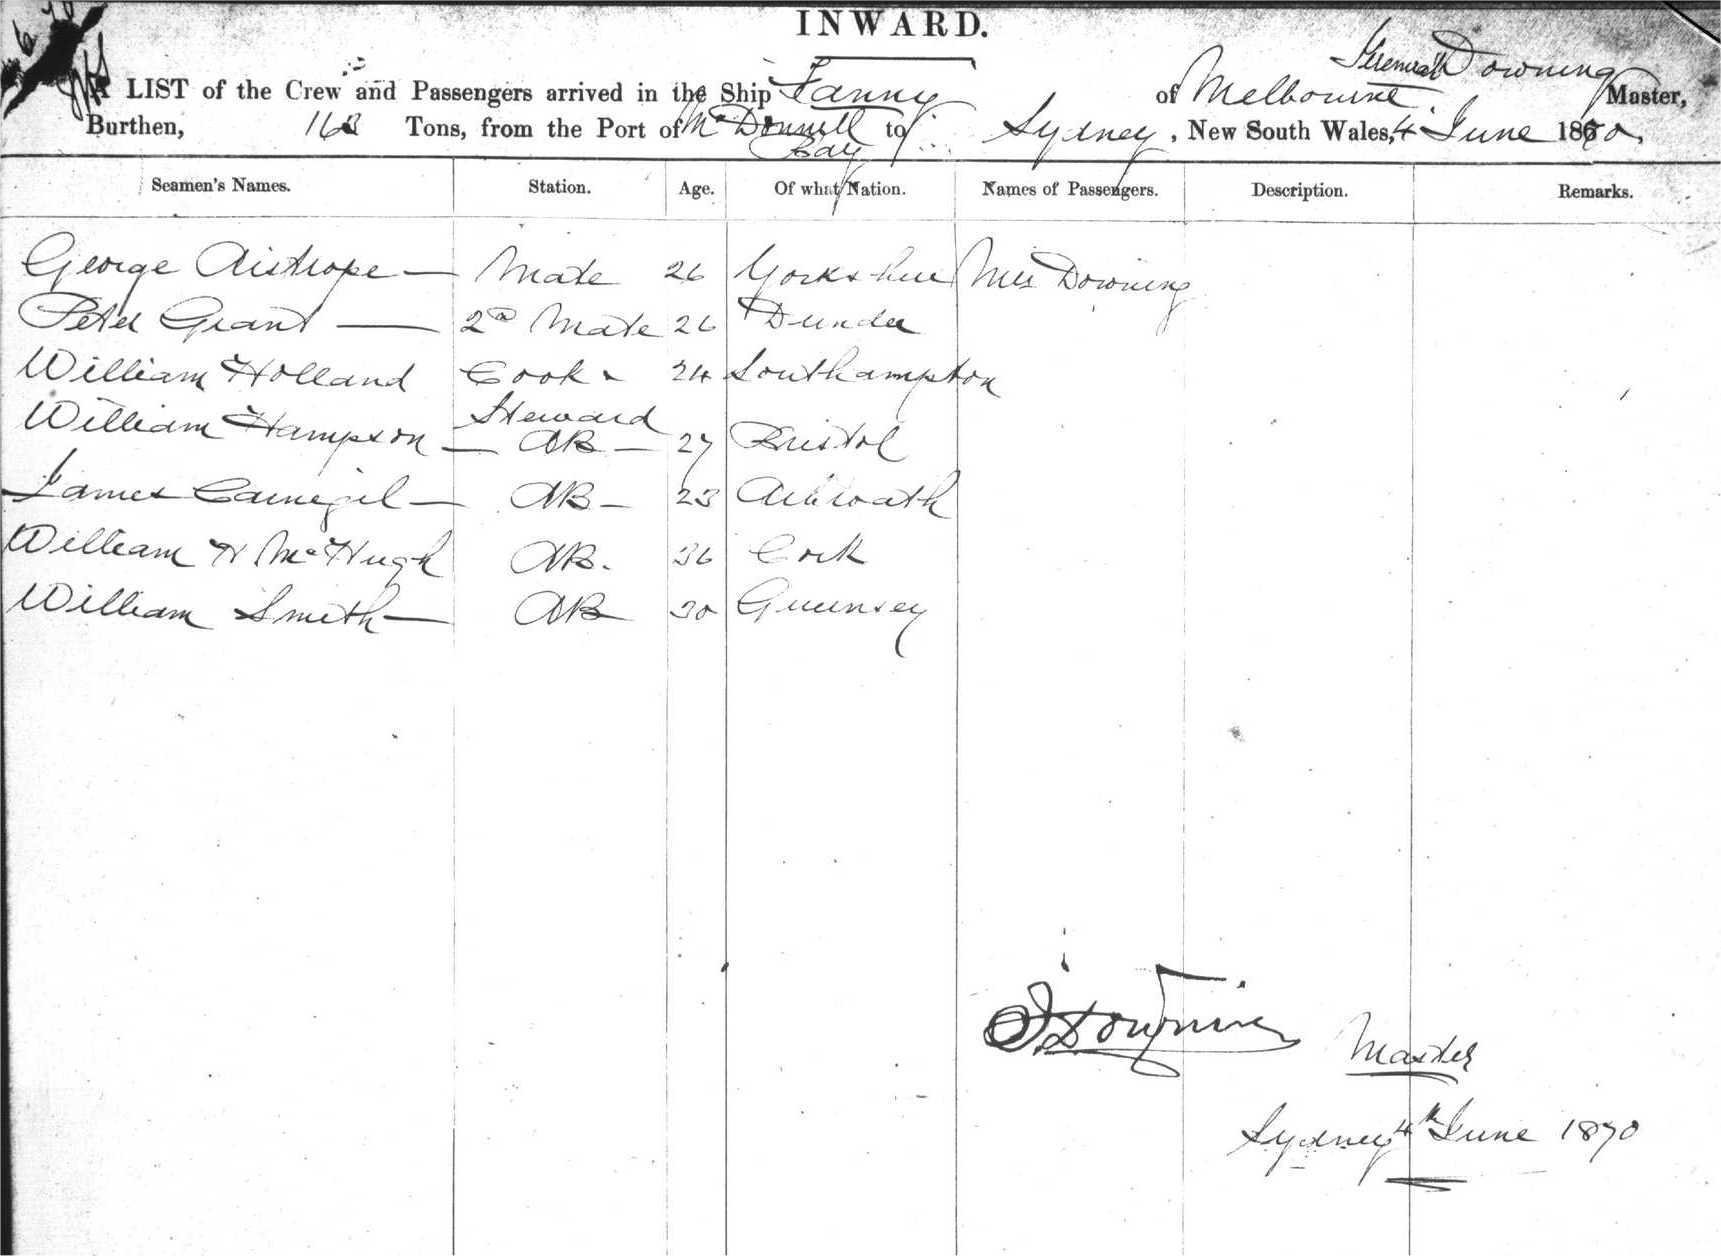 INWARD.
Jeremiah Downing
A LIST of the Crew and Passengers arrived in the Ship Fanny of Melbourne Master,
Burthen, 163 Tons, from the Port of McDonnell Bay to Sydney, New South Wales, 4 June 1870,
Seamen's Names. Station. Age. Of what Nation. Names of Passengers. Description. Remarks.
George Aistrope — Mate 26 Yorkshire Mrs Downing
Peter Grant — 2d Mate 26 Dundee
William Holland Cook & Steward 24 Southampton
William Hampson — AB — 27 Bristol
James Carnegie — AB — 23 Arbroath
William H McHugh AB. 36 Cork
William Smith — AB 30 Guernsey
J. Downing
Master
Sydney 4th June 1870